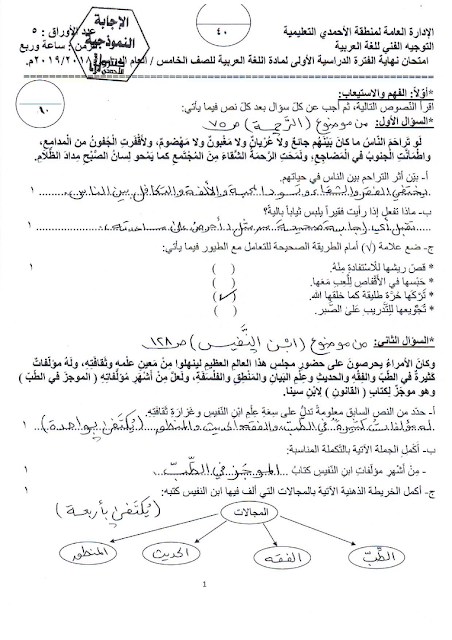 الإدارة العامة لمنطقة الأحمدي التعليمية
التوجيه الفني للغة العربية
امتحان نهاية الفترة الدراسية الأولى لمادة اللغة العربية للصف الخامس / العام ٢٠١٩/٢٠١٨م.
الإجابة
النموذجية
عدد الأوراق : ٥
الزمن : ساعة وربع
٤٠
*أولاً: الفهم والاستيعاب:
١٠
اقرأ النصوص التالية، ثم أجب عن كل سؤال بعد كل نص فيما يأتي:
*السؤال الأول: من موضوع (الرحمة) ص ٧٥
لو تراحم الناس ما كان بينهم جائع ولا عريان ولا مغبون ولا مهضوم، ولأقفرت الجفون من المدامع،
واطمأنت الجنوب في المضاجع، ولمحت الرحمة الشقاء من المجتمع كما يمحو لسان الصبح مداد الظلام.
أ- بين أثر التراحم بين الناس في حياتهم.
يختفي الفقر والشقاء وتسود المحبة والألفة والتكافل بين الناس ١
ب- ماذا تفعل إذا رأيت فقيرا يلبس ثيابا بالية؟
تقبل أي إجابة صحيحة مثل أحرص على مساعدته ١
ج- ضع علامة (√) أمام الطريقة الصحيحة للتعامل مع الطيور فيما يأتي:
* قص ريشها للاستفادة منه. ( )
* حبسها في الأقفاص للعب معها. ( )
* تركها حرة طليقة كما خلقها الله. (√) ١
* تجويعها للتدريب على الصبر. ( )
*السؤال الثاني: من موضوع (ابن النفيس) ص ١٢٨
وكان الأمراء يحرصون على حضور مجلس هذا العالم العظيم لينهلوا من معين علمه وثقافته، وله مؤلفات
كثيرة في الطب والفقه والحديث وعلم البيان والمنطق والفلسفة، ولعل من أشهر مؤلفاته ( الموجز في الطب )
وهو موجز لكتاب ( القانون ) لابن سينا.
أ- حدد من النص السابق معلومة تدل على سعة علم ابن النفيس وغزارة ثقافته.
له مؤلفات كثيرة في الطب والفقه الحديث والمنطق (يكتفى بواحدة) ١
ب- أكمل الجملة الآتية بالتكملة المناسبة:
- من أشهر مؤلفات ابن النفيس كتاب الموجز في الطب ١
ج- أكمل الخريطة الذهنية الآتية بالمجالات التي ألف فيها ابن النفيس كتبه:
المجالات (يكتفى بأربعة) ١
الطب الفقه الحديث المنطق
1